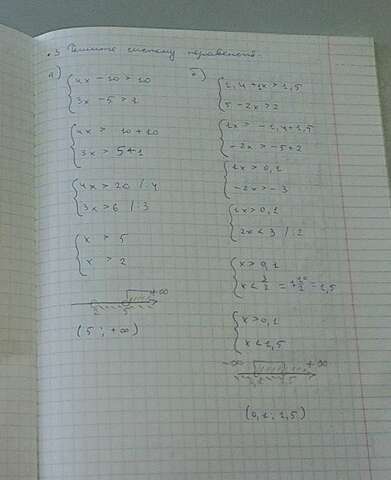 .3 Решите систему неравенств.
а)
4x - 10 > 10
3x - 5 > 1
4x > 10 + 10
3x > 5+1
4x > 20 / 4
3x > 6 / 3
x > 5
x > 2
+∞
2 5
(5 ; +∞)
б)
1,4 + 1x > 1,5
5 - 2x > 2
1x > -1,4+1,5
-2x > -5+2
1x > 0,1
-2x > -3
1x > 0,1
2x < 3 / 2
x > 0,1
x < 3/2 = 1 1/2 = 1,5
x > 0,1
x < 1,5
-∞ +∞
0,1 1,5
(0,1 ; 1,5)